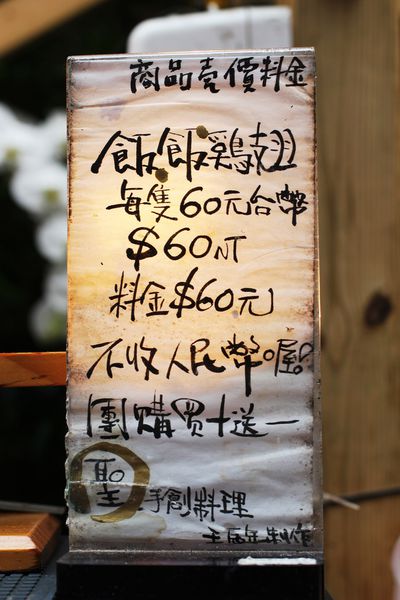 商品壳價料金
飯飯鷄翅
每隻60元台幣
$60NT
料金$60元
不收人民幣。喔!
團購買十送一
聖
手創料理
制作